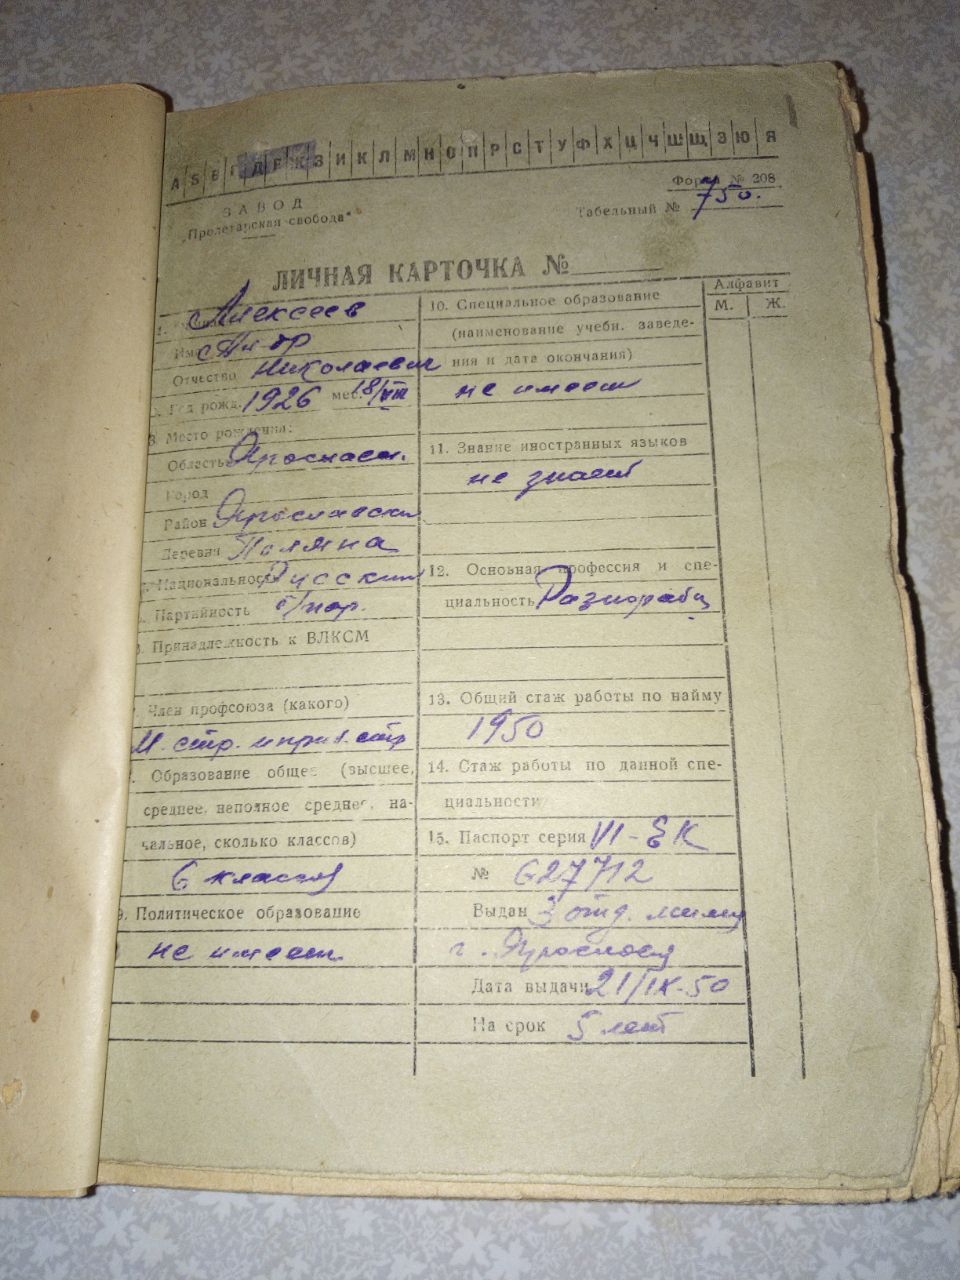 А Б В Г Д Е Ж З И К Л М Н О П Р С Т У Ф Х Ц Ч Ш Щ Э Ю Я
Форма № 208
ЗАВОД
„Пролетарская свобода"
Табельный № 750.
ЛИЧНАЯ КАРТОЧКА №
Алексеев
Имя
Отчество Николаевич
Год рожд. 1926 мес. 18/VIII
3. Место рождения:
Область Яросласк.
Город
Район Ярославски
Деревня Поляна
Национальность Русский
Партийность б/пар.
Принадлежность к ВЛКСМ
Член профсоюза (какого)
М. стр. и прив. стр
Образование общее (высшее,
среднее, неполное среднее, на-
чальное, сколько классов)
6 классов
9. Политическое образование
не имеет
10. Специальное образование
(наименование учебн. заведе-
ния и дата окончания)
не имеет
11. Знание иностранных языков
не знает
12. Основная профессия и спе-
циальность Разнорабоч
13. Общий стаж работы по найму
1950
14. Стаж работы по данной спе-
циальности
15. Паспорт серия VI-ЕК
№ 627712
Выдан 3 отд. милиц
г. Ярославля
Дата выдачи 21/IX-50
На срок 5 лет
Алфавит
М. Ж.